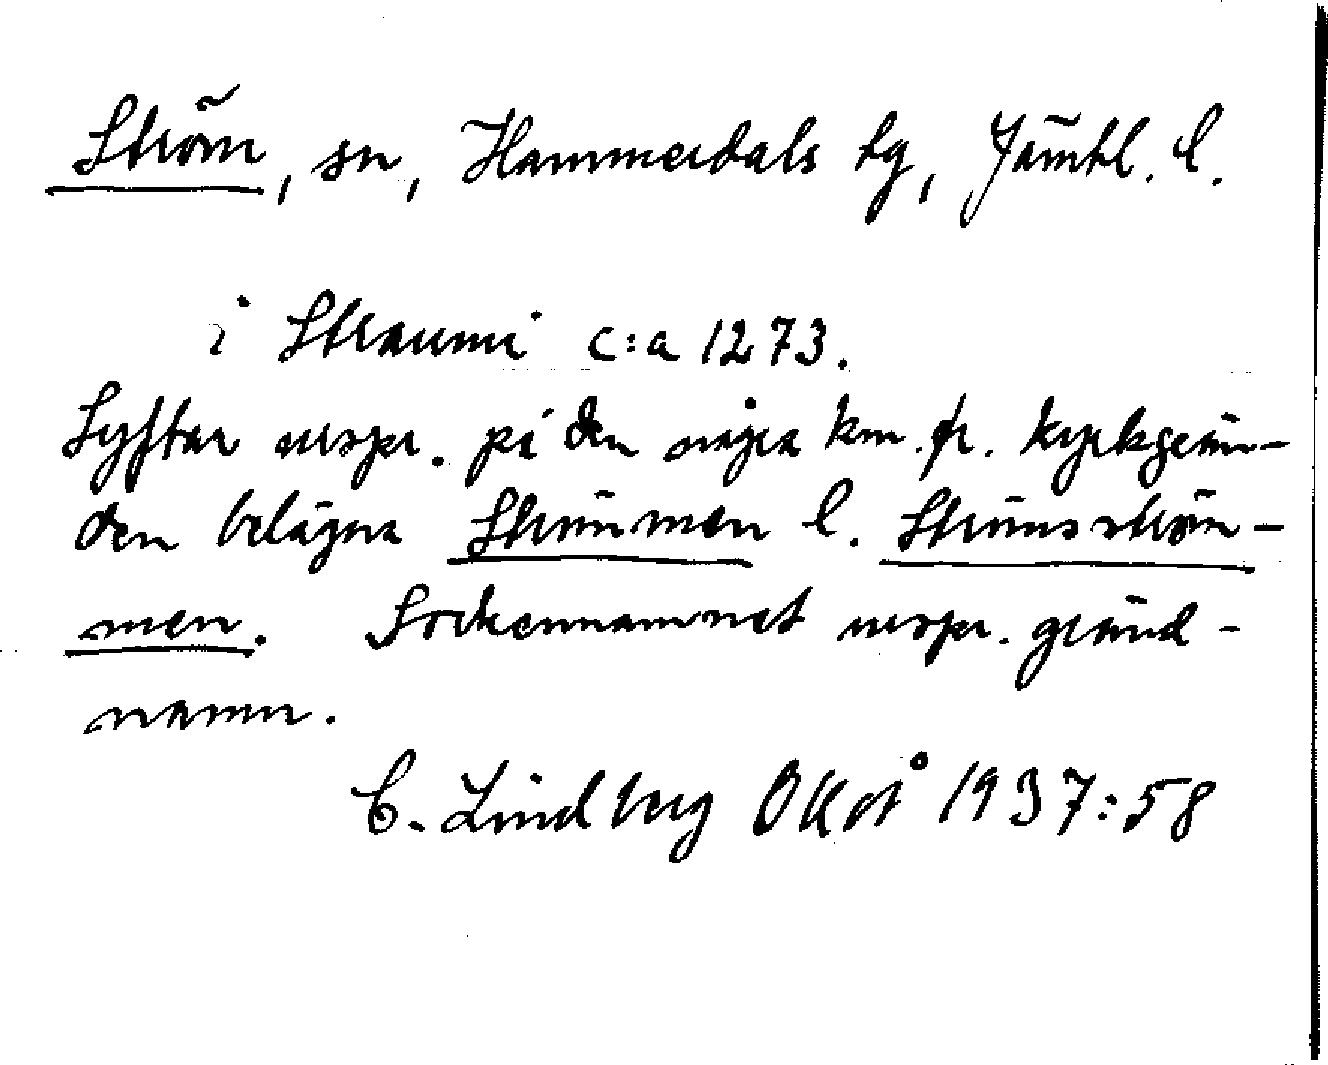 Ström, sn, Hammerdals tg, Jämtl. l.
i Straumi c:a 1273.
Syftar urspr. på den några km. fr. kyrkgrän-
den belägna Strömmen l. Ströms ström-
men. Sockennamnet urspr. gränd-
namn.
C. Lindberg OKoÅ 1937:58